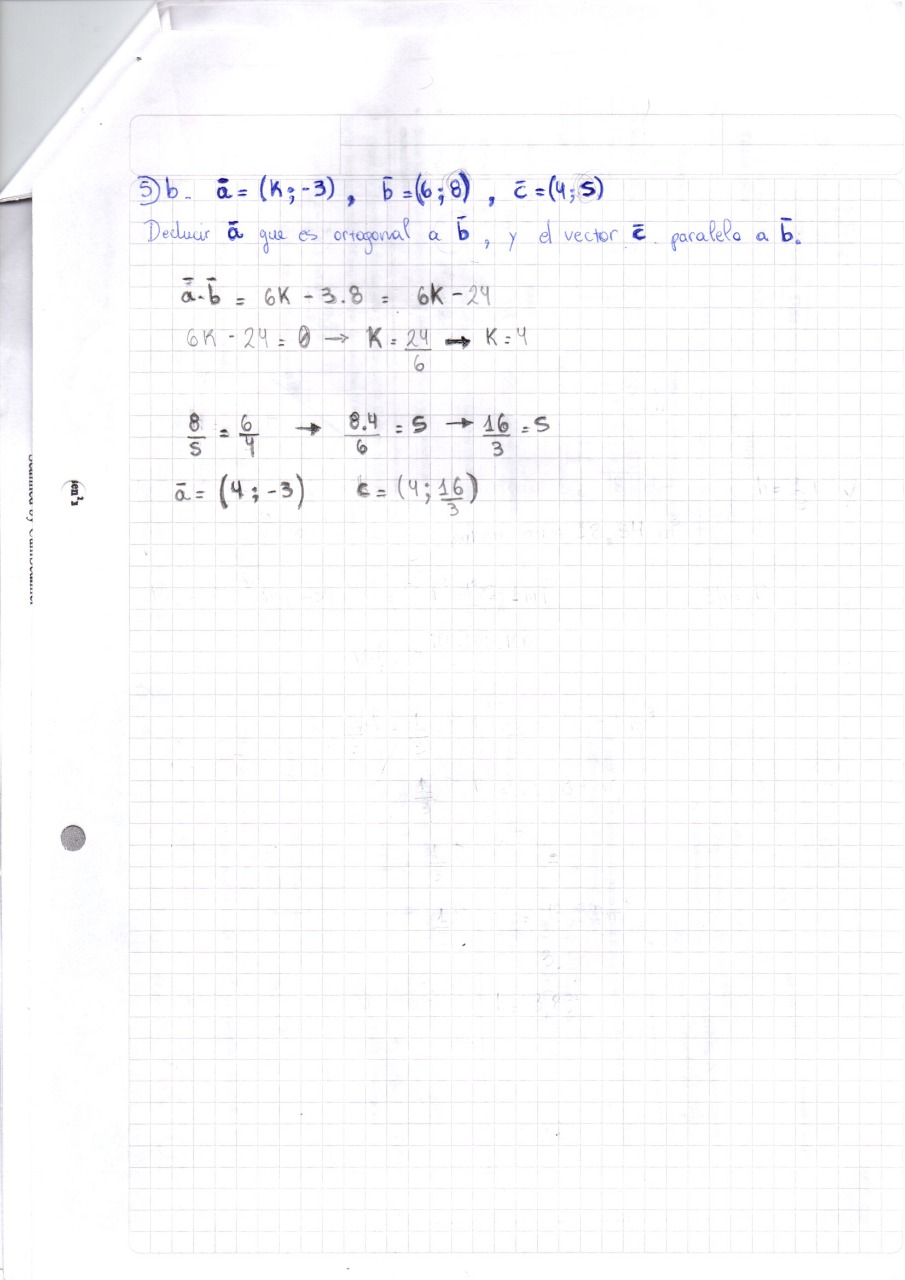 5)b- ā = (K;-3) , b̄ =(6;8) , c̄ =(4;S)
Deducir ā que es ortogonal a b̄, y el vector c̄ paralelo a b̄.
ā.b̄ = 6K - 3.8 = 6K - 24
6K - 24 = 0 → K = 24/6 → K = 4
8/S = 6/4 → 8.4/6 = S → 16/3 = S
ā = (4;-3) c = (4;16/3)